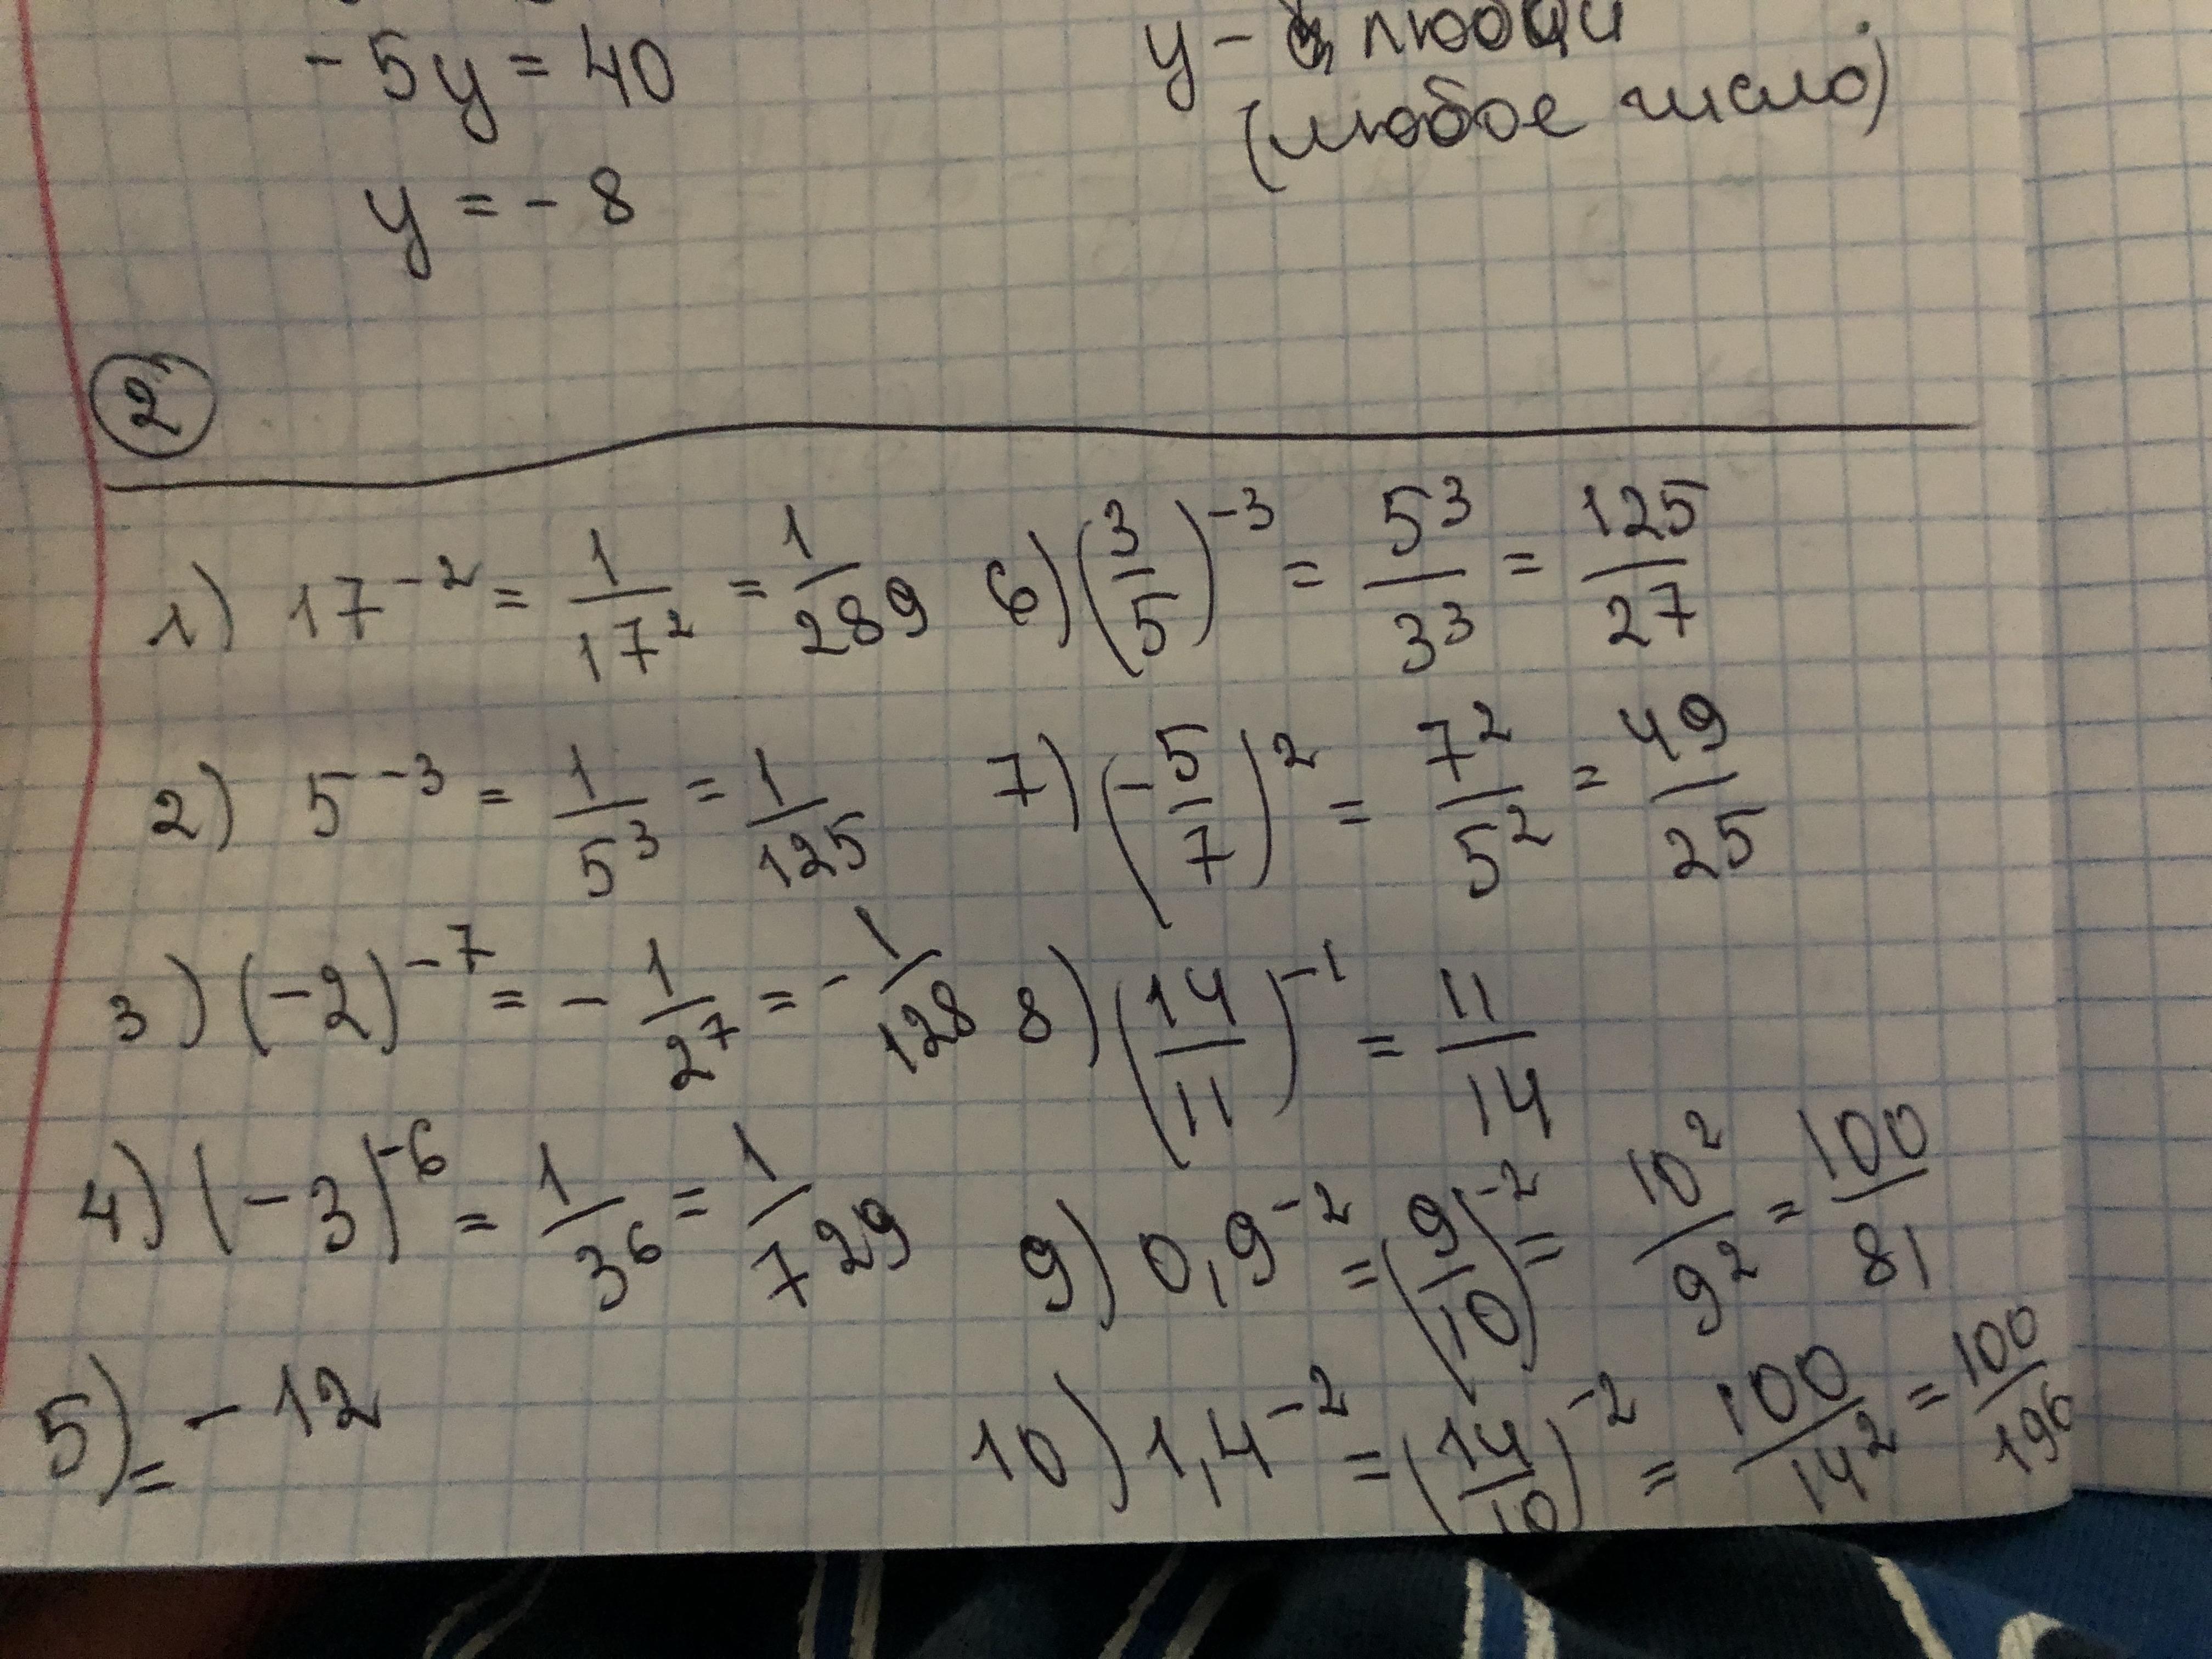 -5y = 40
y - любой
(любое число)
y = -8
2
1) 17^-2 = 1/17^2 = 1/289
6) (3/5)^-3 = 5^3/3^3 = 125/27
2) 5^-3 = 1/5^3 = 1/125
7) (-5/7)^2 = 7^2/5^2 = 49/25
3) (-2)^-7 = -1/2^7 = -1/128
8) (14/11)^-1 = 11/14
4) (-3)^-6 = 1/3^6 = 1/729
9) 0,9^-2 = (9/10)^-2 = 10^2/9^2 = 100/81
5) = -12
10) 1,4^-2 = (14/10)^-2 = 100/14^2 = 100/196